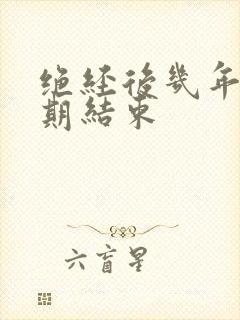 绝经後幾年
期結束
六盲星